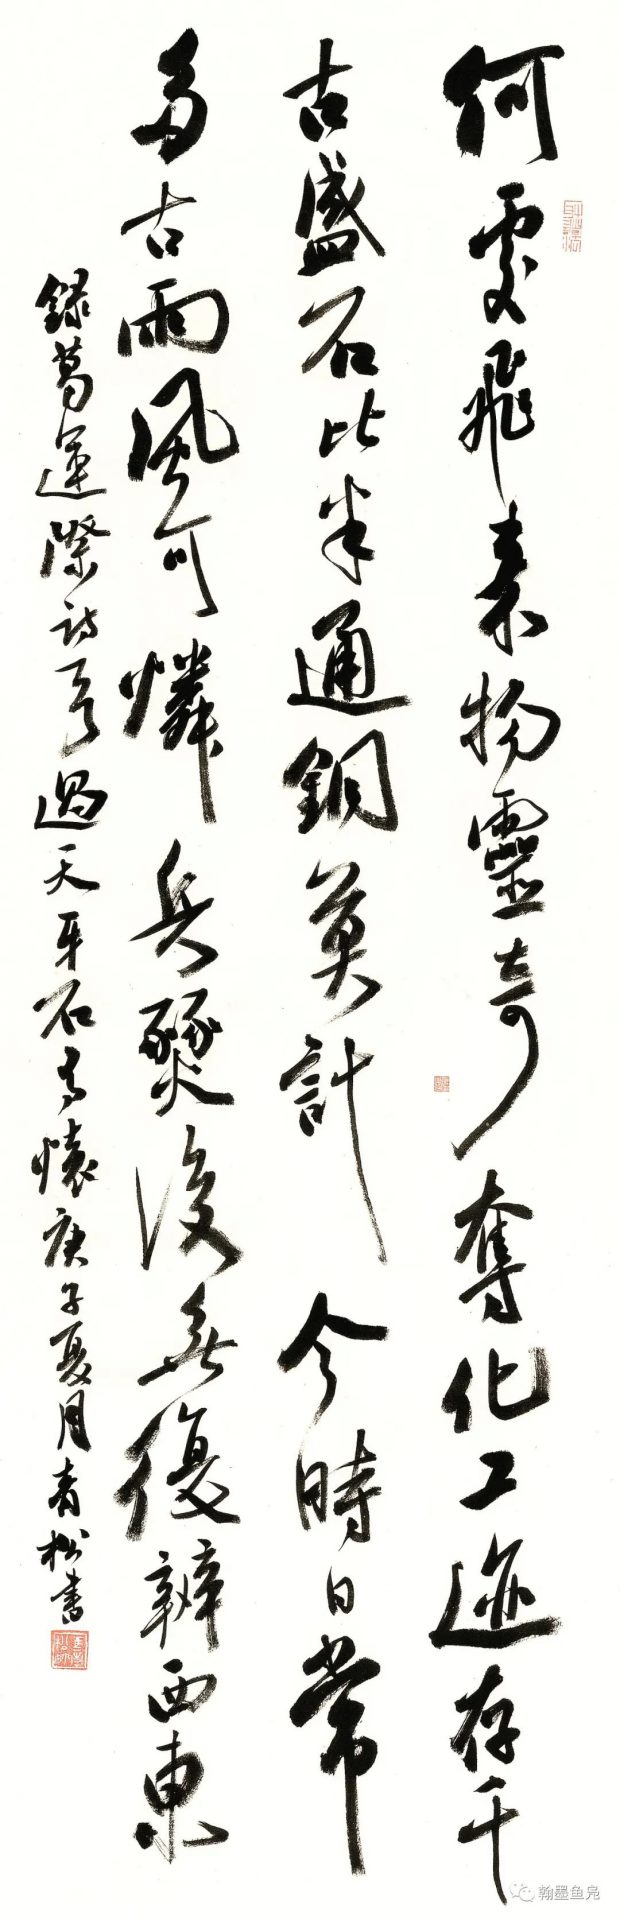 何處飛來物靈奇奪化工迹存千
古盛石比半通銅莫計今時日常
多古雨風可憐兵燹後無復辨西東
錄葛運際詩一首過天牙石有懷庚子夏月青松書
翰墨鱼凫